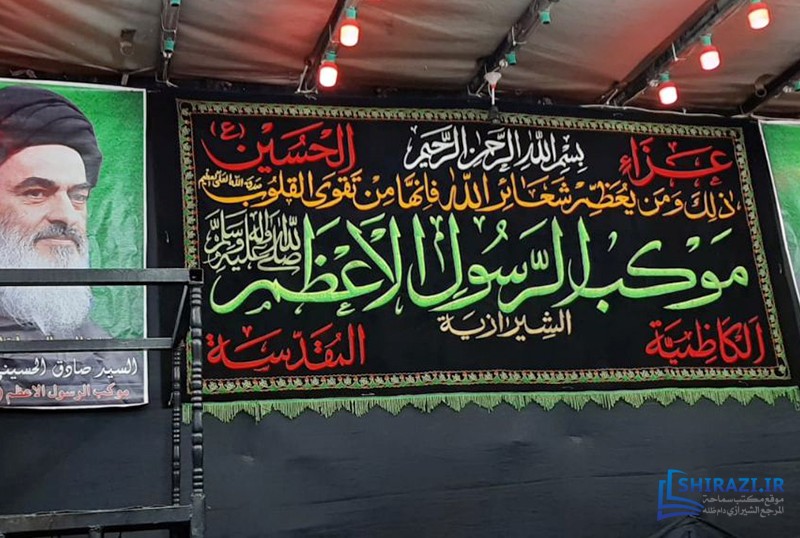 عزاء بسم الله الرحمن الرحيم الحسين (ع)
ذلك ومن يعظم شعائر الله فانها من تقوى القلوب صدق الله العلي العظيم
موكب الرسول الاعظم صلى الله عليه وآله وسلم
الشيرازية
الكاظمية المقدسة
السيد صادق الحسيني
موكب الرسول الاعظم
SHIRAZI.IR
موقع مكتب سماحة
المرجع الشيرازي دام ظله